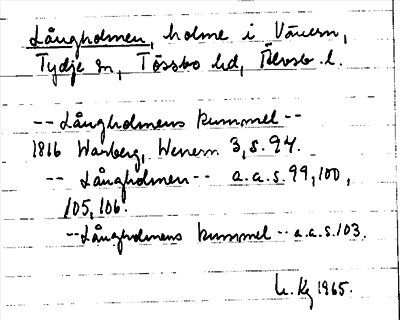 Långholmen, holme i Vänern,
Tydje sn, Tössbo hd, Älvsb. l.
-- Långholmens kummel --
1816 Warberg, Wenern 3, s. 94.
-- Långholmen -- a.a.s. 99, 100,
105, 106.
-- Långholmens kummel -- a.a.s. 103.
1965.